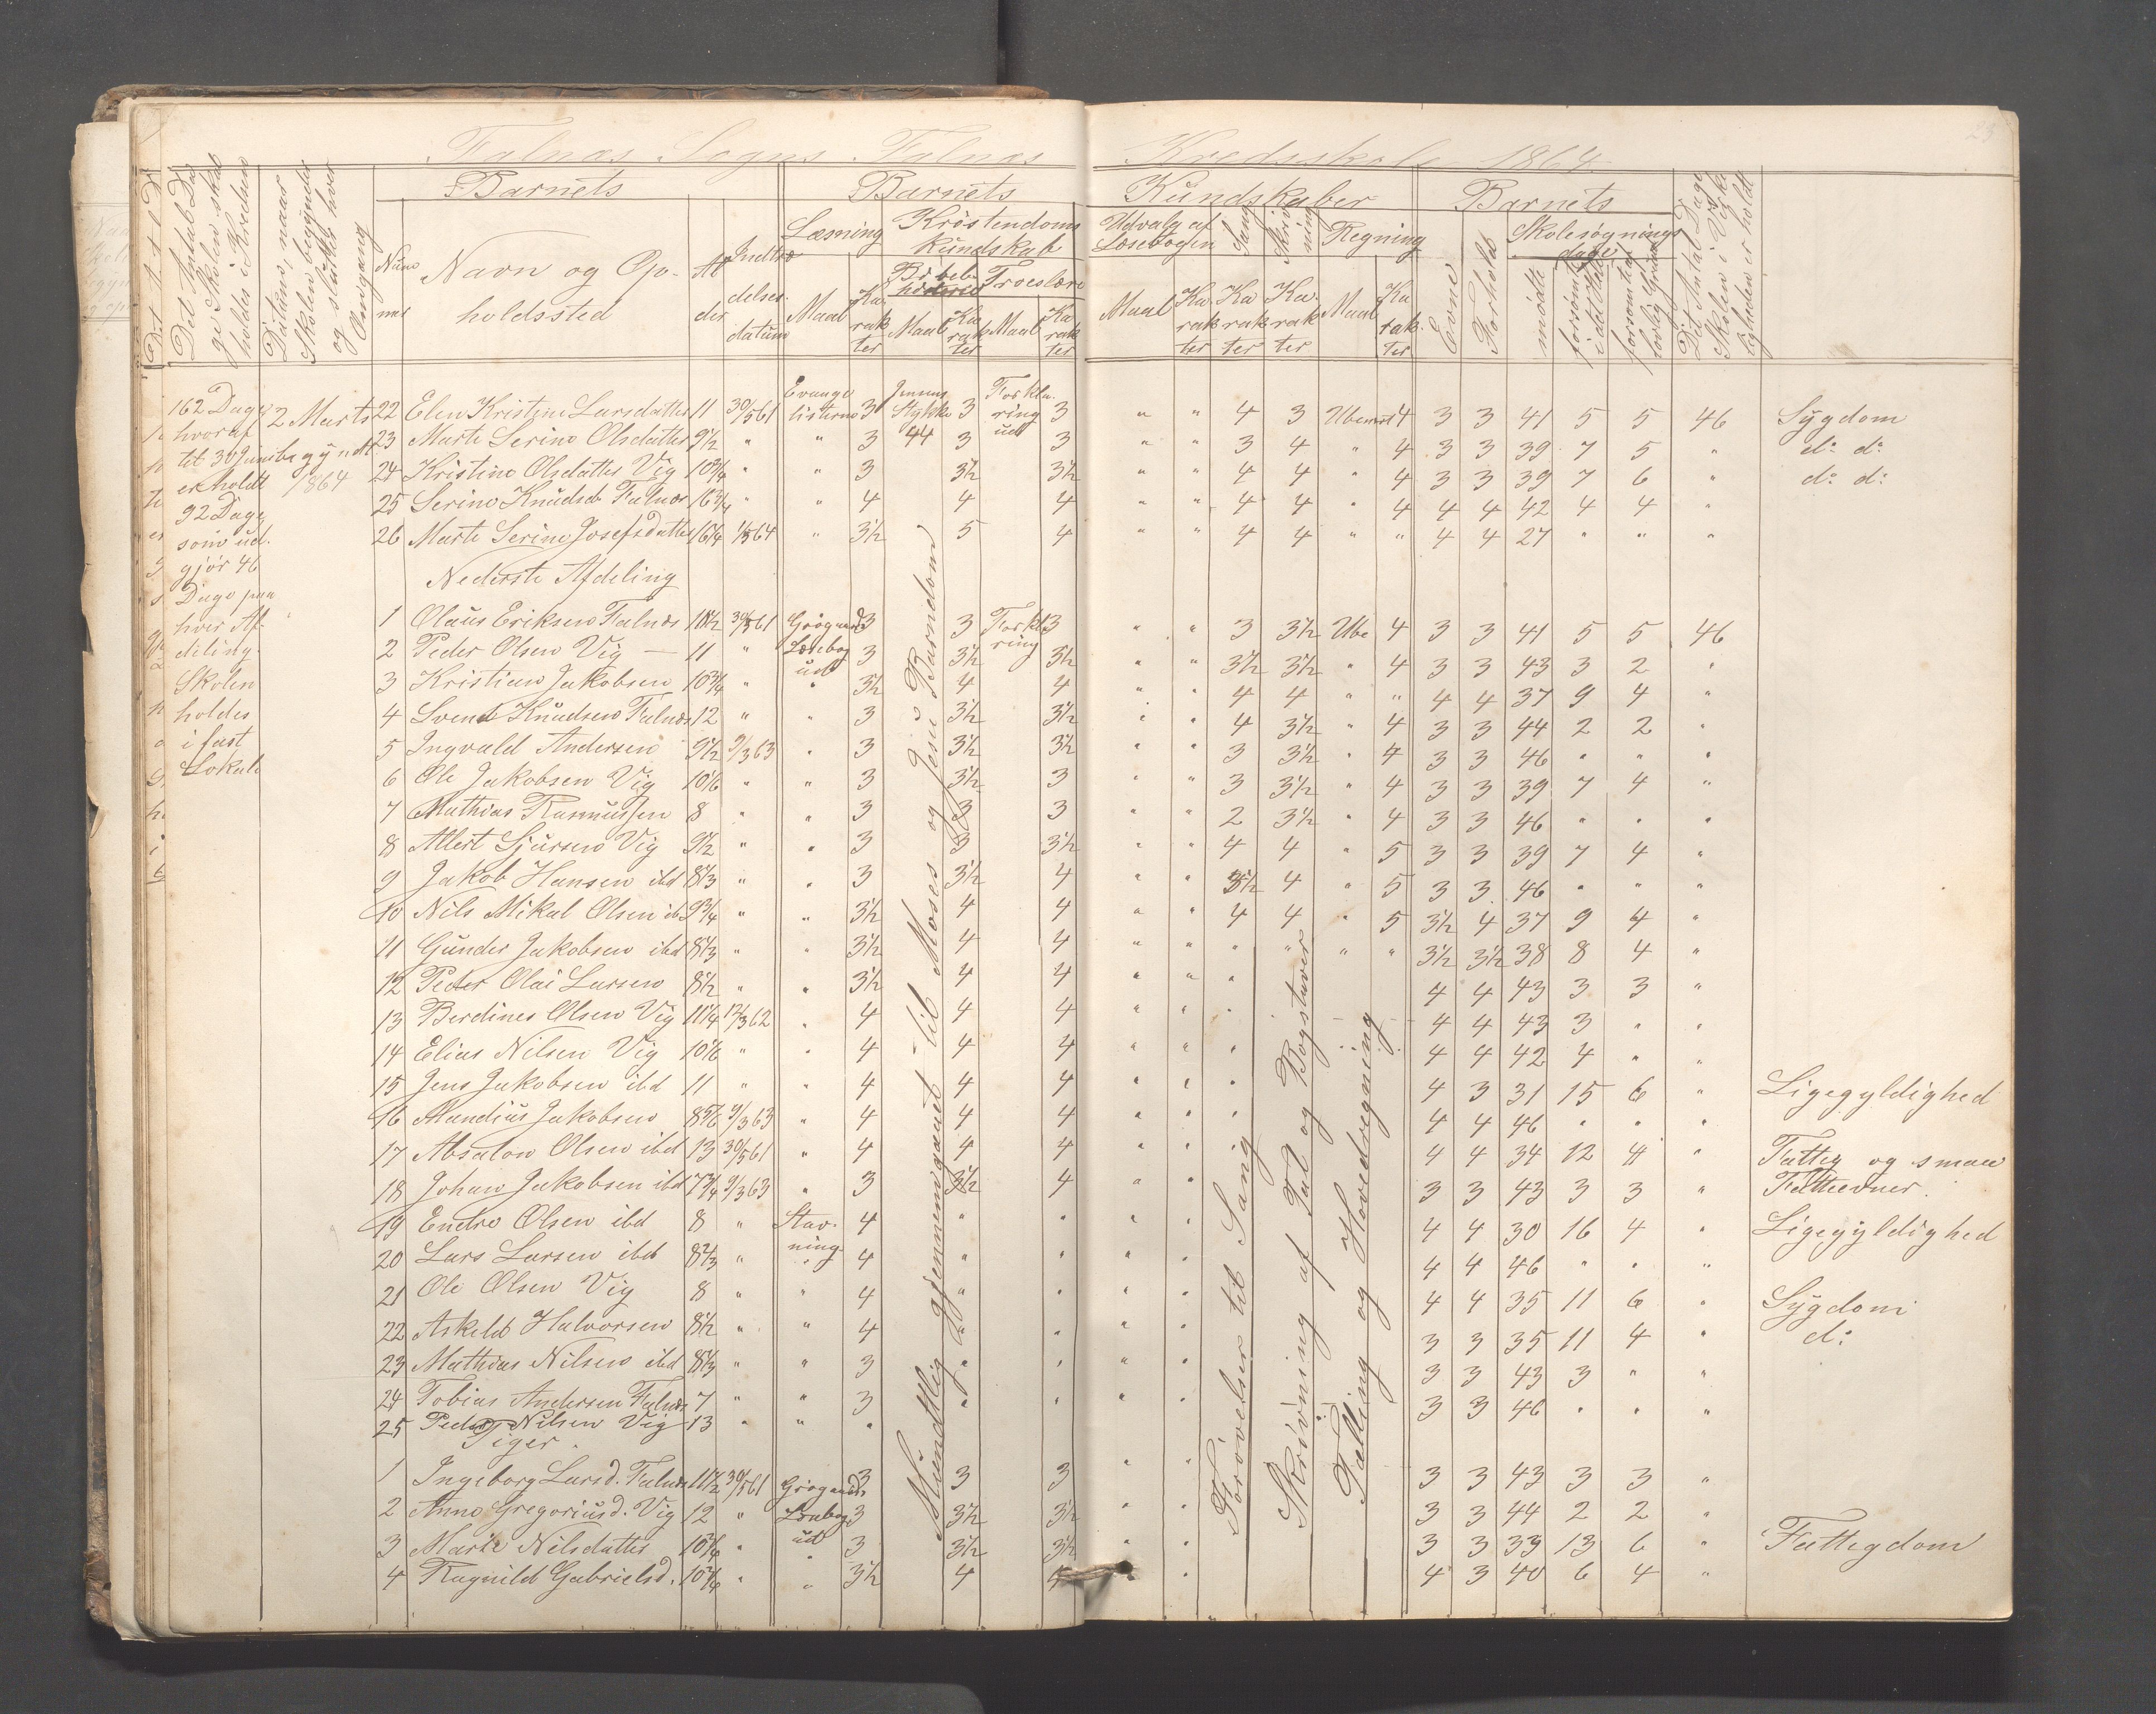 Falnæs Sogns Falnæs Kredsskole 1864
Det Antal Dage Skolen skal holdes i Kredsen
Datums, naar Skolen begyndte og sluttet hver Omgang
Barnets
Barnets
Kundskaber
Barnets
Num mer
Navn og Opholdssted
Al der
Indtræ delses datum
Læsning
Kristendoms kundskab
Udvalg af Læsebogen
Sang
Skrivning
Regning
Skolesøgnings dage
Maal Karakter
Bibel historie
Troeslære
Maal Karakter Maal Karakter
Maal Karakter Karakter Karakter Maal Karakter
Evne
Forhold
mødte
forsømte i det Hele
forsømte af lovlig Grund
Det Antal Dage Skolen i Virkeligheden er holdt
162 Dage
hvoraf
til 30 Juni
er holdt
92 Dage
som ud-
gjør 46
Dage paa
hver Af-
deling.
Skolen
holdes
i fast
Lokale
2 Marts
begyndt
1864
22 Elen Kristine Larsdatter 11 30/5 61 Evangelisterne 3 3 Forklaring ud 3 " " 4 3 Ubenevnt 4 3 3 41 5 5 46 Sygdom
23 Marte Serine Olsdatter 9½ " " 3 44 3 3 " " 3 4 " 4 3 3 39 7 5 " do do
24 Kristine Olsdatter Vig 10¾ " " 3 3½ 3½ " " 4 4 " 4 3 3 39 7 6 " do do
25 Serine Knudsd Falnæs 16¾ " " 4 4 4 " " 4 4 " 4 4 4 42 4 4 "
26 Marte Serine Josefsdatter 16¼ 1/3 64 " 3½ 5 4 " " 4 4 " " 4 4 27 " " "
Nederste Afdeling
1 Olaus Eriksen Falnæs 10½ 30/5 61 Grøgaards Læsebog ud 3 3 Forklaring 3 " " 3 3½ Ube 4 3 3 41 5 5 46
2 Peder Olsen Vig — 11 " 3 3½ 3½ " " 3½ 3½ " 4 3 3 43 3 2 "
3 Kristian Jakobsen 10¾ " " 3½ 4 4 " " 4 4 " " 4 4 37 9 4 "
4 Svend Knudsen Falnæs 12 " " 3 3½ 3½ " " 4 3½ " 4 3 3 44 2 2 "
5 Ingvald Andersen 9½ 9/3 63 " 3 3½ 3½ " " 3 3½ " 4 3 3 46 " " "
6 Ole Jakobsen Vig 10⅙ " " 3 3½ 3 " " 3 3½ " 4 3 3 39 7 4 "
7 Mathias Rasmussen 8 " " 3 3 3 " " 2 3½ " 4 3 3 46 " " "
8 Albert Sjursen Vig 9½ " " 3 3 3½ " " 4 4 " 5 3 3 39 7 4 "
9 Jakob Hansen ibd 8⅓ " " 3 3½ 4 " " 3½ 4 " 5 3 3 46 " " "
10 Nils Mikal Olsen ib 9¾ " " 3½ 4 4 " " 4 4 " 5 3½ 4 37 9 4 "
11 Gunder Jakobsen ibd 8⅓ " " 3½ 4 4 " " " " " " 3½ 3½ 38 8 4 "
12 Peder Olai Larsen 8½ " " 3½ 4 4 " " " 4 4 43 3 3 "
13 Berdines Olsen Vig 11¼ 12/3 62 " 4 4 4 " " " 4 4 43 3 " "
14 Elias Nilsen Vig 10⅙ " " 4 4 4 " " " 4 4 42 4 " "
15 Jens Jakobsen ibd 11 " " 4 4 4 " " " 4 3 31 15 6 " Ligegyldighed
16 Mandius Jakobsen 8⅚ 9/3 63 " 4 4 4 " " " 4 4 46 " " "
17 Absalon Olsen ibd 13 30/5 61 " 4 4 4 " " 4 4 34 12 4 " Fattig og smaae
18 Johan Jakobsen ibd 7¾ 9/3 63 " 3 3½ 4 " " 3 3 43 3 3 " Fatteevner.
19 Endre Olsen ibd 8 " Stavning 4 " " " " 4 4 30 16 4 " Ligegyldighed
20 Lars Larsen ibd 8⅔ " " 4 " " " " 4 4 46 " " "
21 Ole Olsen Vig 8 " " 4 " " " " 4 4 35 11 6 " Sygdom
22 Askild Halvorsen 8½ " " 4 " " " " 3 3 35 11 4 " do
23 Mathias Nilsen ibd 8⅓ " " 3 " " " " 3 3 43 3 " "
24 Tobias Andersen Falnæs 7 " " 3 " " " " 3 3 46 " " "
25 Peder Nilsen Vig 13 " " "
Piger.
1 Ingeborg Larsd. Falnæs 11½ 30/5 61 Grøgaards Læsebog ud 3 3 3 " " 3 3 43 3 3 "
2 Anne Gregoriusd. Vig 12 " 3 3½ 3½ " " 3 3 44 2 2 "
3 Marte Nilsdatter " 3 3½ 3½ " " 3 3 33 13 6 " Fattigdom
4 Ragnild Gabrielsd. " " 3½ 4 4 " 4 3 40 6 4 "
Mundtlig gjennemgaaet til Moses og Jesu Barndom
Forøvelser til Sang
Skrivning af Tal og Bogstaver
Tælling og Hovedregning